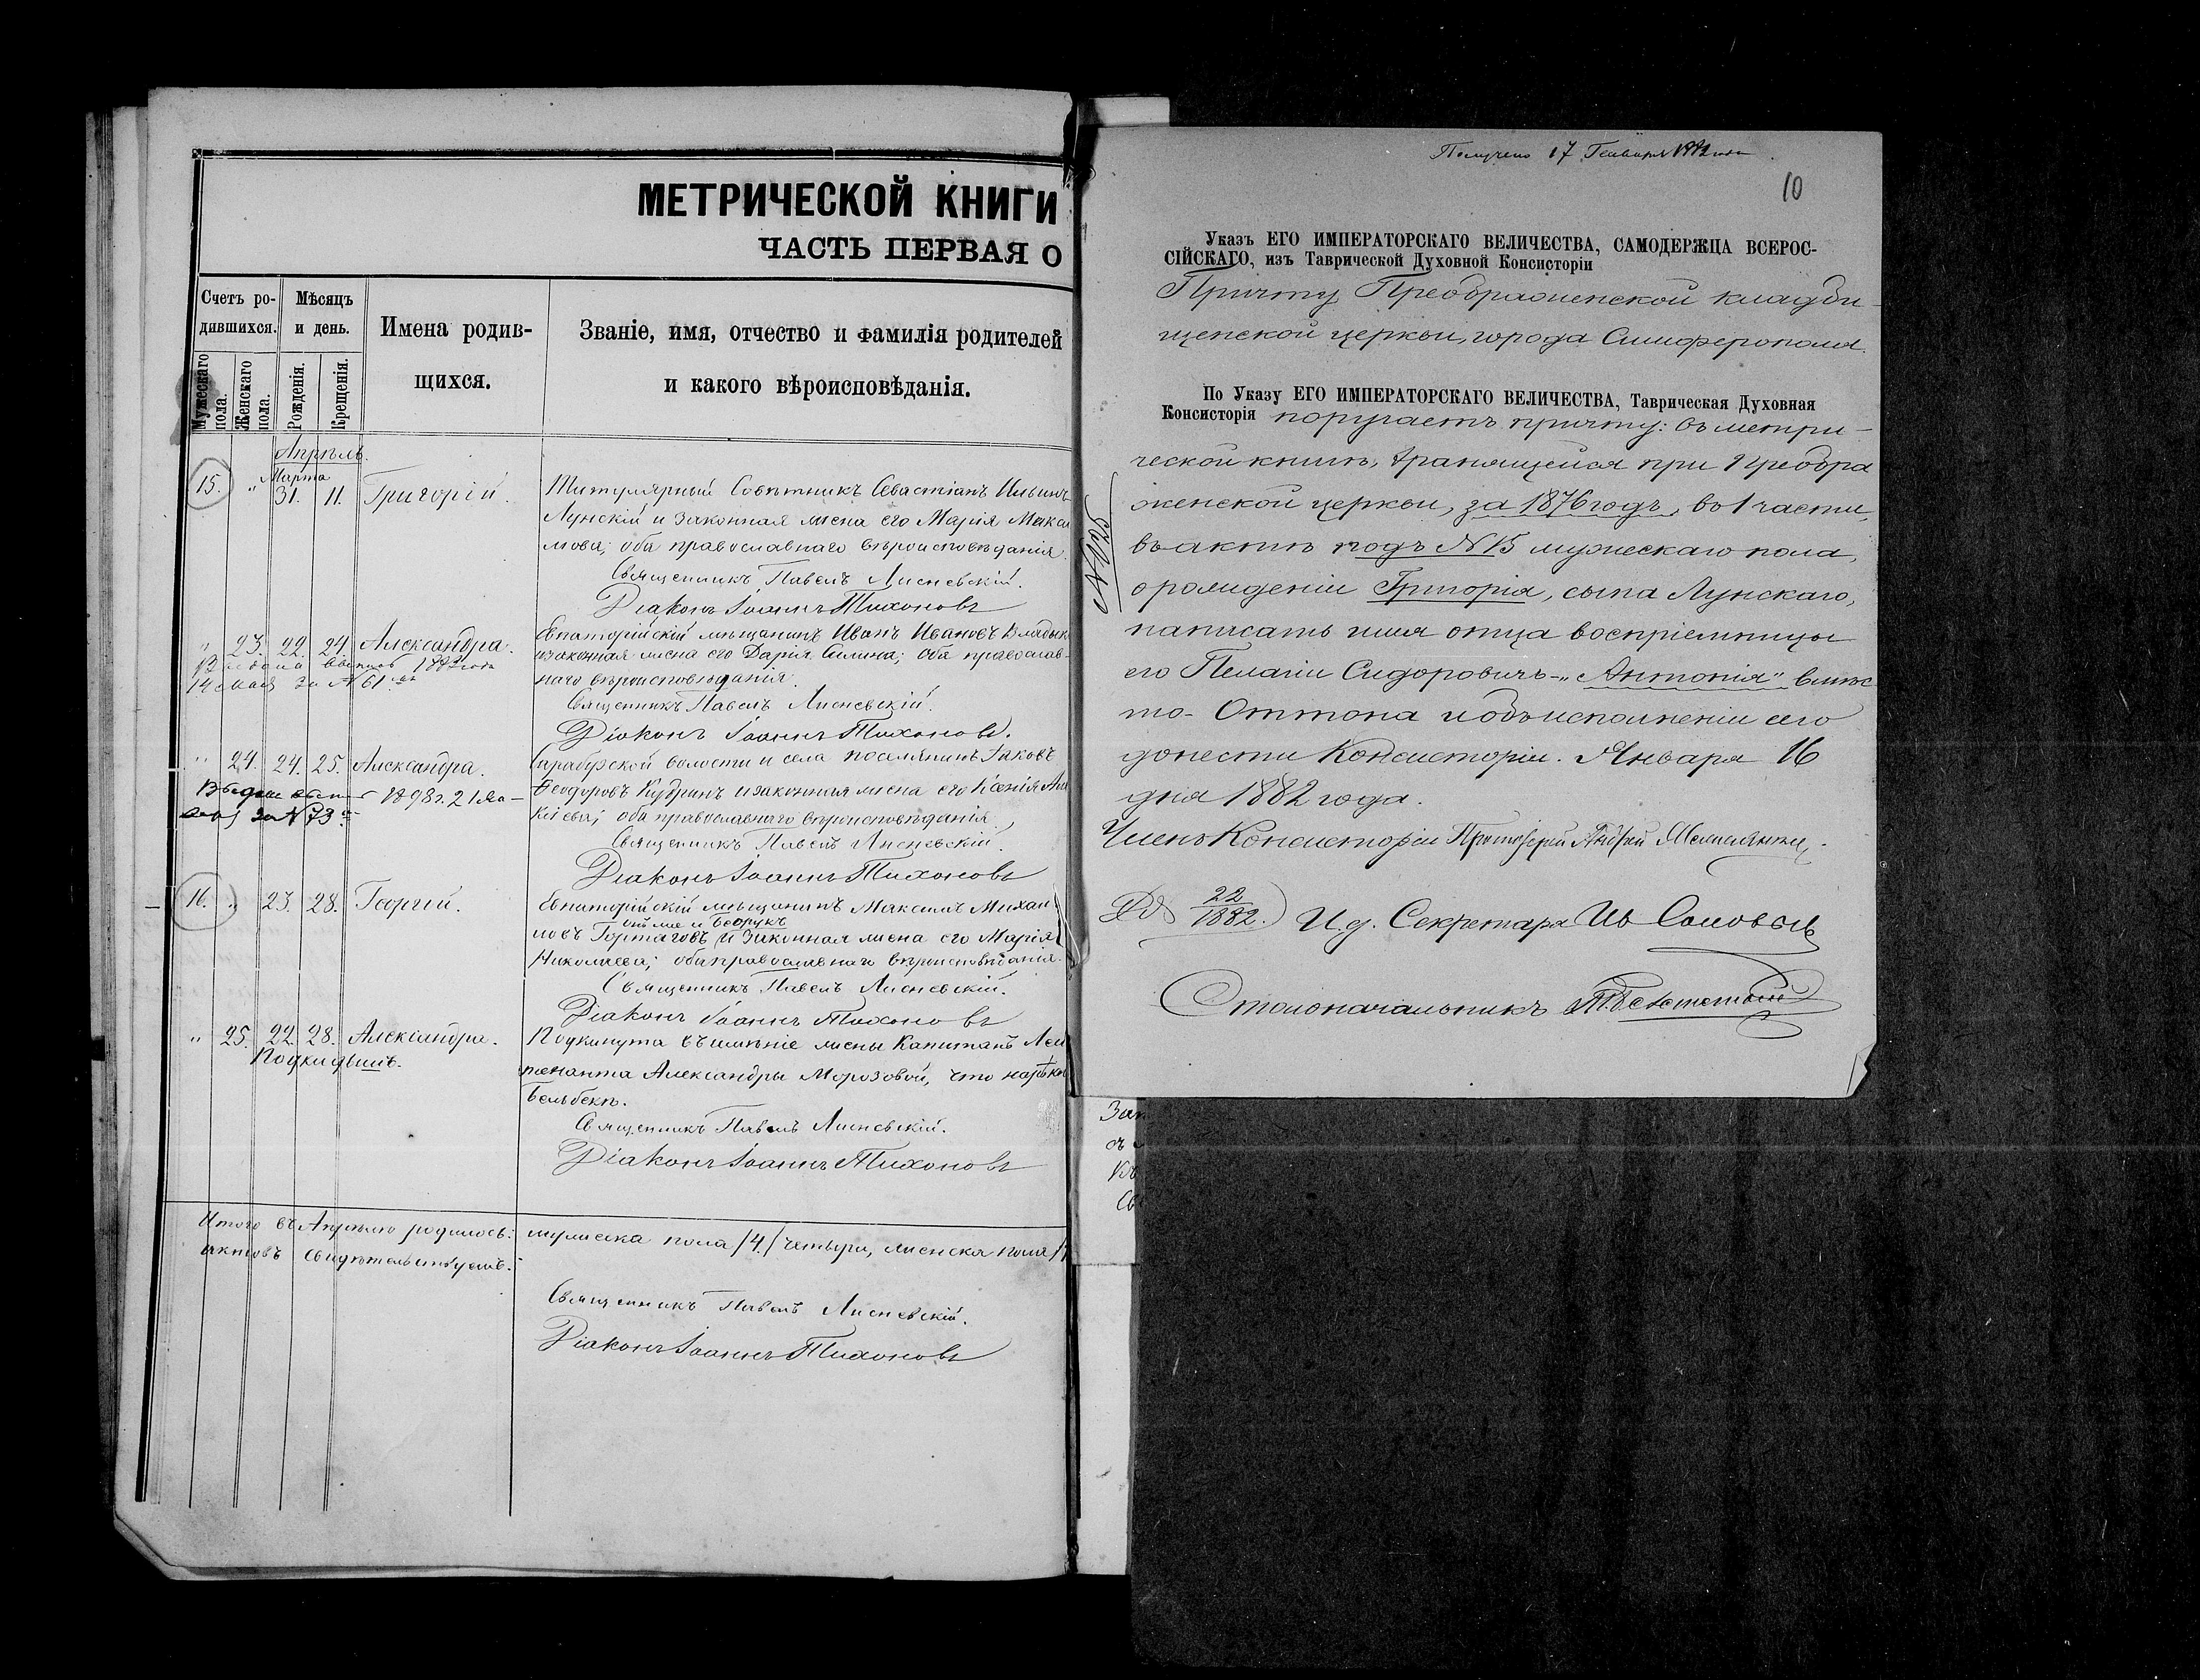 МЕТРИЧЕСКОЙ КНИГИ
ЧАСТЬ ПЕРВАЯ О
Счетъ ро-
дившихся.
Мѣсяцъ
и день.
Имена родив-
щихся.
Званіе, имя, отчество и фамилія родителей
и какого вѣроисповѣданія.
Мужескаго пола.
Женскаго пола.
Рожденія.
Крещенія.
Апрѣль.
Марта
15. " 31. 11. Григорій.
Титулярный Совѣтникъ Севастіанъ Ильинъ
Лунскій и законная жена его Марія Макси
мова; оба православнаго вѣроисповѣданія.
Священникъ Павелъ Лисневскій.
Діаконъ Іоаннъ Тихоновъ
" 23. 22. 24. Александра.
14 мая за №61
Евпаторійскій мѣщанинъ Иванъ Ивановъ
и законная жена его Дарія; оба православ-
наго вѣроисповѣданія.
Священникъ Павелъ Лисневскій.
Діаконъ Іоаннъ Тихоновъ.
" 24. 24. 25. Александра.
1898 г. 21
за №73
Сарабузской волости и села поселянинъ Іаковъ
Ѳеодоровъ Кудринъ и законная жена его Ксенія
кіева; оба православнаго вѣроисповѣданія.
Священникъ Павелъ Лисневскій.
Діаконъ Іоаннъ Тихоновъ
16. " 23. 28. Георгій.
Евпаторійскій мѣщанинъ Максимъ Михаи
ловъ и законная жена его Марія
Николаева; оба православнаго вѣроисповѣданія.
Священникъ Павелъ Лисневскій.
Діаконъ Іоаннъ Тихоновъ
" 25. 22. 28. Александра.
Подкидышъ.
Подкинута въ имѣніе жены Капитанъ Лей
тенанта Александры Морозовой, что на рѣкѣ
Бельбекъ.
Священникъ Павелъ Лисневскій.
Діаконъ Іоаннъ Тихоновъ
Итого въ Апрѣлѣ родилось: мужеска пола /4./ четыре, женска пола
актовъ свидѣтельствуемъ.
Священникъ Павелъ Лисневскій.
Діаконъ Іоаннъ Тихоновъ
Получено 17 Генваря 1882 года
10
Указъ ЕГО ИМПЕРАТОРСКАГО ВЕЛИЧЕСТВА, САМОДЕРЖЦА ВСЕРОС-
СІЙСКАГО, изъ Таврической Духовной Консисторіи
Причту Преображенской кладби-
щенской церкви, города Симферополя.
По Указу ЕГО ИМПЕРАТОРСКАГО ВЕЛИЧЕСТВА, Таврическая Духовная
Консисторія поручаетъ причту: въ метри-
ческой книгѣ, хранящейся при Преобра
женской церкви, за 1876 годъ, въ 1 части,
въ актѣ подъ №15 мужескаго пола,
о рожденіи Григорія, сына Лунскаго,
написать имя отца воспріемницы
его Пелагіи Сидоровичъ - „Антонія" вмѣс
то - Оттона и объ исполненіи сего
донести Консисторіи. Января 16
дня 1882 года.
Членъ Консисторіи Протоіерей Андрей
22
1882.
И. д. Секретаря Ив Соловьевъ
Столоначальникъ